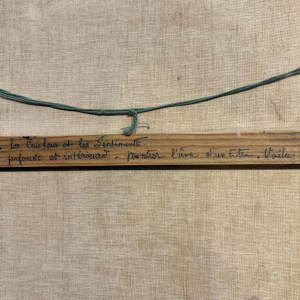 . la Couleur et les Sentiments
profonds et intérieurs. montrer l'âme d'un Etre. Voilà